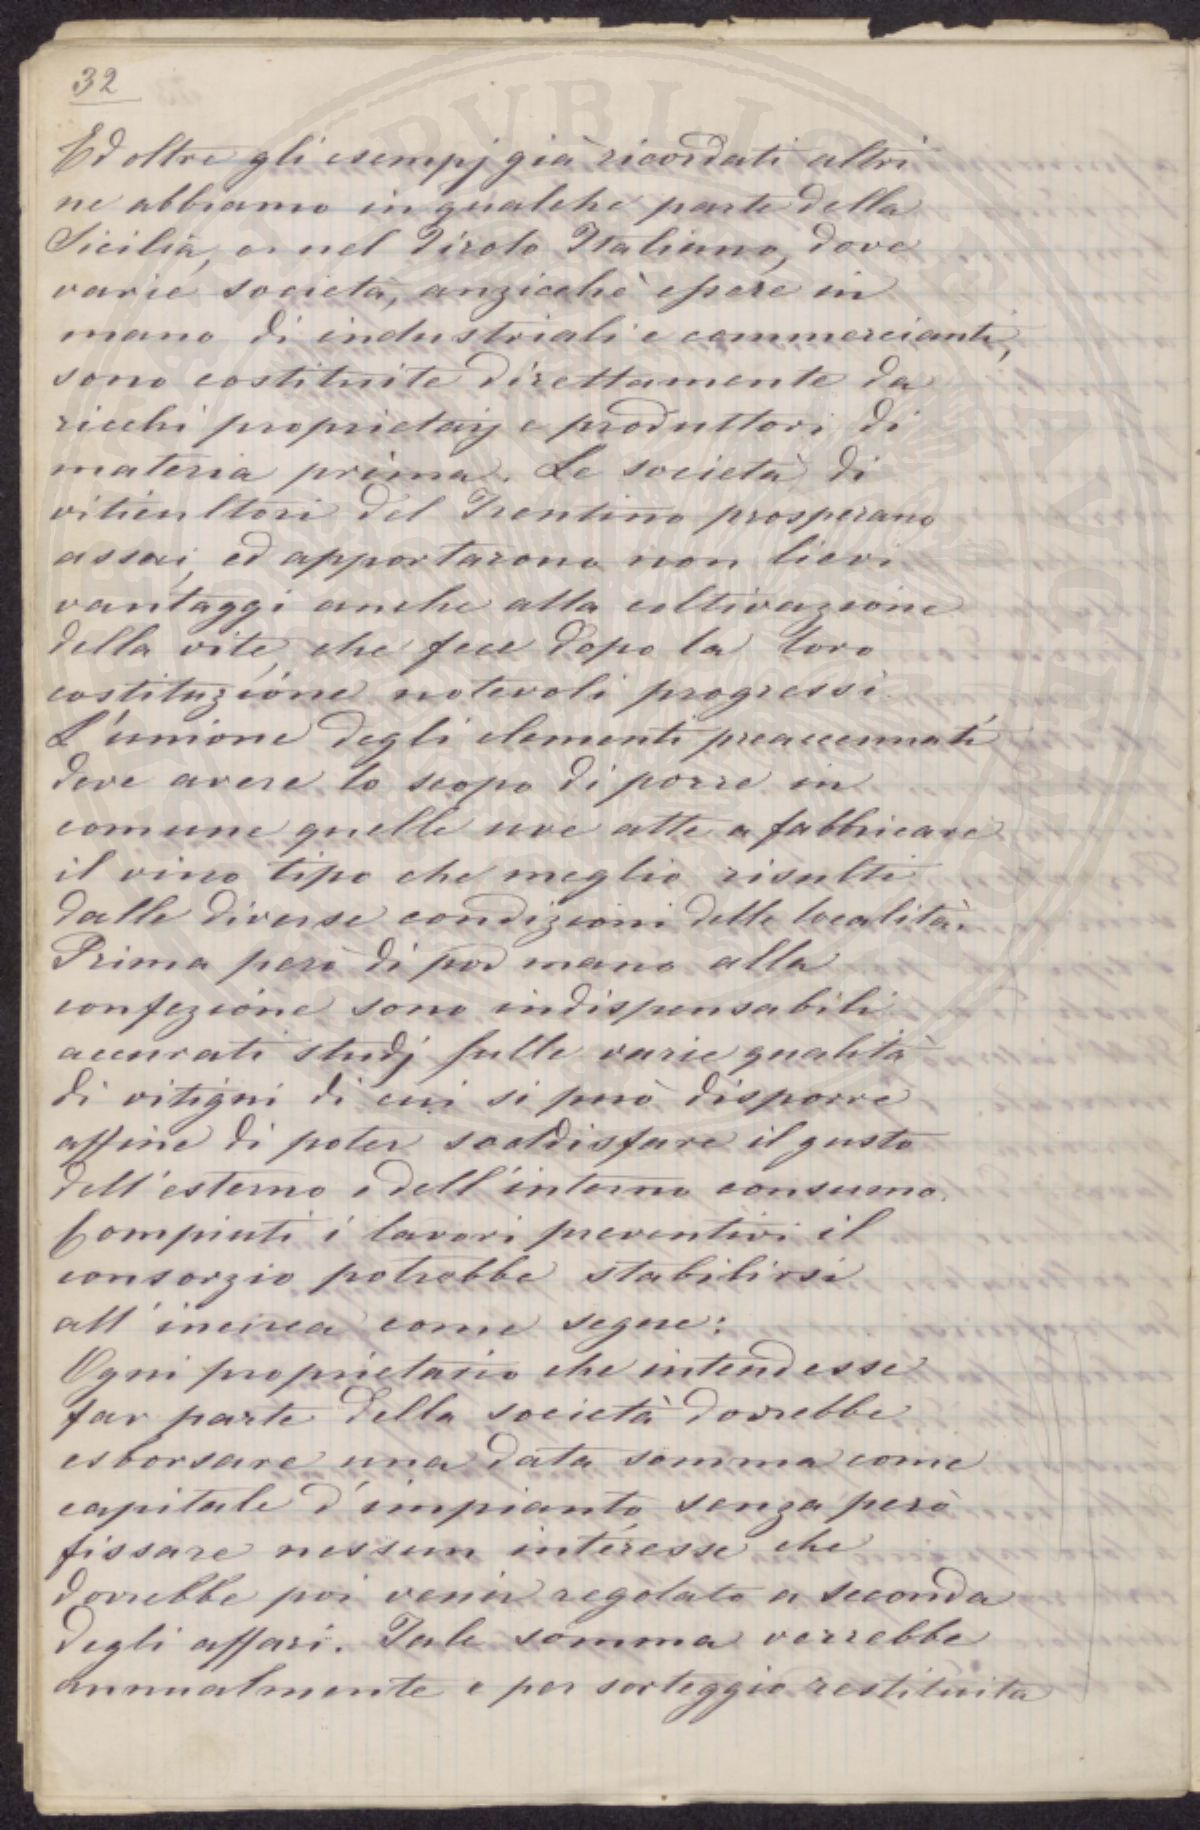 32
Ed oltre gli esempj già ricordati altri
ne abbiamo in qualche parte della
Sicilia, e nel Tirolo Italiano, dove
varie società, anzicchè essere in
mano di industriali e commercianti,
sono costituite direttamente da
ricchi proprietarj e produttori di
materia prima. Le società di
viticultori del Trentino prosperano
assai, ed apportarono non lievi
vantaggi anche alla coltivazione
della vite, che fece dopo la loro
costituzione notevoli progressi.
L'unione degli elementi preaccennati
deve avere lo scopo di porre in
comune quelle uve atte a fabbricare
il vino tipo che meglio risulti
dalle diverse condizioni delle località.
Prima però di por mano alla
confezione sono indispensabili
accurati studj sulle varie qualità
di vitigni di cui si può disporre
affine di poter soddisfare il gusto
dell'esterno e dell'interno consumo.
Compiuti i lavori preventivi il
consorzio potrebbe stabilirsi
all'incirca come segue:
Ogni proprietario che intendesse
far parte della società dovrebbe
esborsare una data somma come
capitale d'impianto senza però
fissare nessun interesse che
dovrebbe poi venir regolato a seconda
degli affari. Tale somma verrebbe
annualmente e per sorteggio restituita